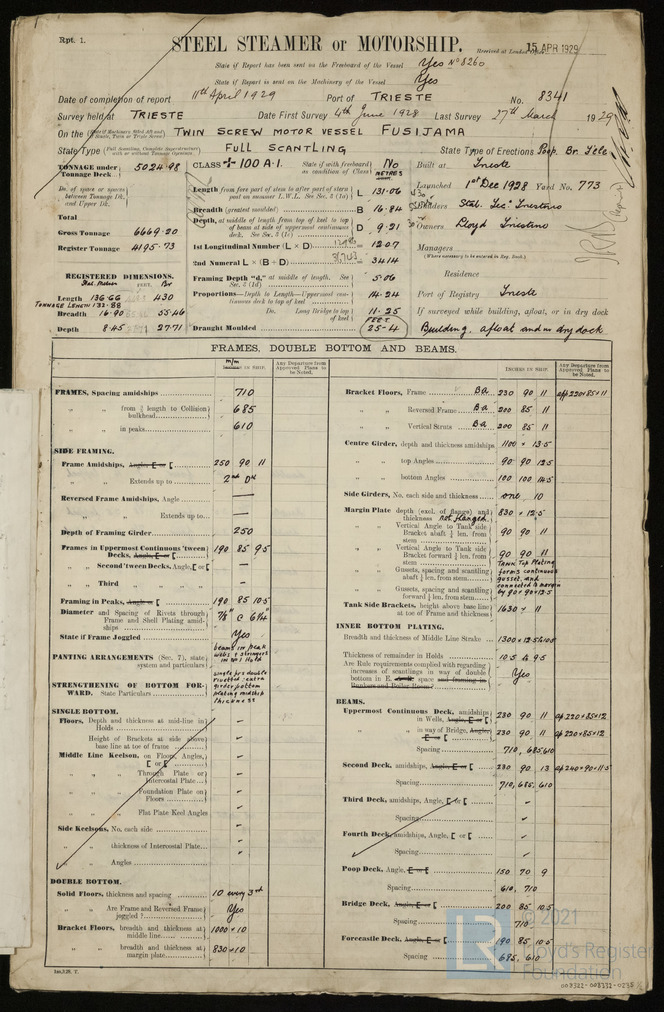 Rpt. 1.
STEEL STEAMER or MOTORSHIP.
Received at London Office 15 APR 1929
State if Report has been sent on the Freeboard of the Vessel Yes No 8260
State if Report is sent on the Machinery of the Vessel Yes
Date of completion of report 11th April 1929 Port of TRIESTE No. 8341
Survey held at TRIESTE Date First Survey 4th June 1928 Last Survey 27th March 1929
On the TWIN SCREW MOTOR VESSEL FUSIJAMA
State Type FULL SCANTLING State Type of Erections Poop. Br. F'cle
TONNAGE under Tonnage Deck 5024.98
Do. of space or spaces between Tonnage Dk. and Upper Dk.
Total
Gross Tonnage 6669.20
Register Tonnage 4195.73
REGISTERED DIMENSIONS.
FEET.
Length 136.66 430
TONNAGE LENGTH 132.88
Breadth 16.90 55.46
Depth 8.45 27.71
CLASS + 100 A.1. State if with freeboard as condition of Class No
METRES
Length from fore part of stem to after part of stern post on summer L.W.L. See Sec. 3 (1a) L 131.06
Breadth (greatest moulded) B 16.84
Depth, at middle of length from top of keel to top of beam at side of uppermost continuous deck. See Sec. 3 (1c) D 9.21
1st Longitudinal Number (L × D) = 1207
2nd Numeral L × (B + D) = 3414
Framing Depth "d," at middle of length. See Sec. 3 (1d) 5.06
Proportions—Depth to Length—Uppermost continuous deck to top of keel 14.24
Do. Long Bridge to top of keel 11.25
Draught Moulded FEET 25-4
Built at Trieste
Launched 1st Dec 1928 Yard No. 773
Builders Stab. Tec° Triestino
Owners Lloyd Triestino
Managers
(Where necessary to be entered in Reg. Book.)
Residence
Port of Registry Trieste
If surveyed while building, afloat, or in dry dock
Building, afloat and in dry dock
FRAMES, DOUBLE BOTTOM AND BEAMS.
m/m
INCHES IN SHIP.
Any Departure from Approved Plans to be Noted.
INCHES IN SHIP.
Any Departure from Approved Plans to be Noted.
FRAMES, Spacing amidships 710
" " from ⅗ length to Collision bulkhead 685
" " in peaks 610
SIDE FRAMING.
Frame Amidships, Angle, [ or [ 250 90 11
" " Extends up to 2nd Dk
Reversed Frame Amidships, Angle —
" " Extends up to —
Depth of Framing Girder 250
Frames in Uppermost Continuous 'tween Decks, Angle, [ or [ 190 85 9.5
" Second 'tween Decks, Angle, [ or [ -
" Third " " " -
Framing in Peaks, Angle or [ 190 85 10.5
Diameter and Spacing of Rivets through Frame and Shell Plating amidships 7/8" @ 6 1/4"
State if Frame Joggled Yes
PANTING ARRANGEMENTS (Sec. 7), state system and particulars beams in peak webs & stringers in No 1 Hold
STRENGTHENING OF BOTTOM FORWARD. State Particulars
SINGLE BOTTOM.
Floors, Depth and thickness at mid-line in Holds -
Height of Brackets at side above base line at toe of frame -
Middle Line Keelson, on Floors, Angles, [ or [ -
" " Through Plate or Intercostal Plate -
" " Foundation Plate on Floors -
" " Flat Plate Keel Angles -
Side Keelsons, No. each side -
" " thickness of Intercostal Plate -
" " Angles -
DOUBLE BOTTOM.
Solid Floors, thickness and spacing 10 every 3rd
" " Are Frame and Reversed Frame joggled? Yes
Bracket Floors, breadth and thickness at middle line 1000 × 10
" " breadth and thickness at margin plate 830 × 10
Bracket Floors, Frame Ba 230 90 11 ap 220×85×11
" " Reversed Frame Ba 200 85 11
" " Vertical Struts Ba 200 85 11
Centre Girder, depth and thickness amidships 1100 × 13.5
" " top Angles 90 90 12.5
" " bottom Angles 100 100 14.5
Side Girders, No. each side and thickness one 10
Margin Plate depth (excl. of flange) and thickness not flanged 830 × 12.5
" " Vertical Angle to Tank side Bracket abaft ¼ len. from stem 90 90 11
" " Vertical Angle to Tank side Bracket forward ¼ len. from stem 90 90 11
" " Gussets, spacing and scantling abaft ¼ len. from stem TANK Top Plating forms continuous gusset, and connected to margin by 90×90×12.5
" " Gussets, spacing and scantling forward ¼ len. from stem
Tank Side Brackets, height above base line at toe of Frame and thickness 1630 × 11
INNER BOTTOM PLATING.
Breadth and thickness of Middle Line Strake 1300 × 12.5 to 10.5
Thickness of remainder in Holds 10.5 to 9.5
Are Rule requirements complied with regarding increases of scantlings in way of double bottom in E. space and framing in Bunkers and Boiler Room? Yes
BEAMS.
Uppermost Continuous Deck, amidships in Wells, Angle, [ or [ 230 90 11 ap 220×85×12
" " in way of Bridge, Angle, [ or [ 230 90 11 ap 220×85×12
Spacing 710, 685, 610
Second Deck, amidships, Angle, [ or [ 230 90 13 ap 240×90×11.5
Spacing 710, 685, 610
Third Deck, amidships, Angle, [ or [ -
Spacing -
Fourth Deck, amidships, Angle, [ or [ -
Spacing -
Poop Deck, Angle, [ or [ 150 70 9
Spacing 610, 710
Bridge Deck, Angle, [ or [ 200 85 10.5
Spacing 710
Forecastle Deck, Angle, [ or [ 190 85 10.5
Spacing 685, 610
© 2021
Lloyd's Register
Foundation
003322-003332-0235